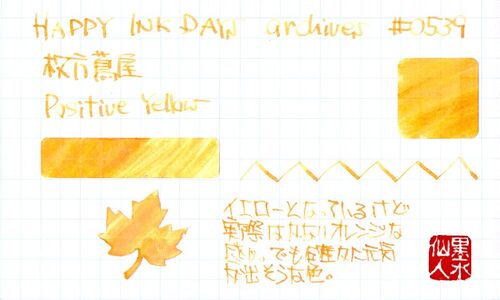 HAPPY INK DAYS archives #0539
枚方蔦屋
Positive Yellow
イエローとなっているけど
実際はかなりオレンジな
感じ。でも確かに元気
が出そうな色。
墨水
仙人